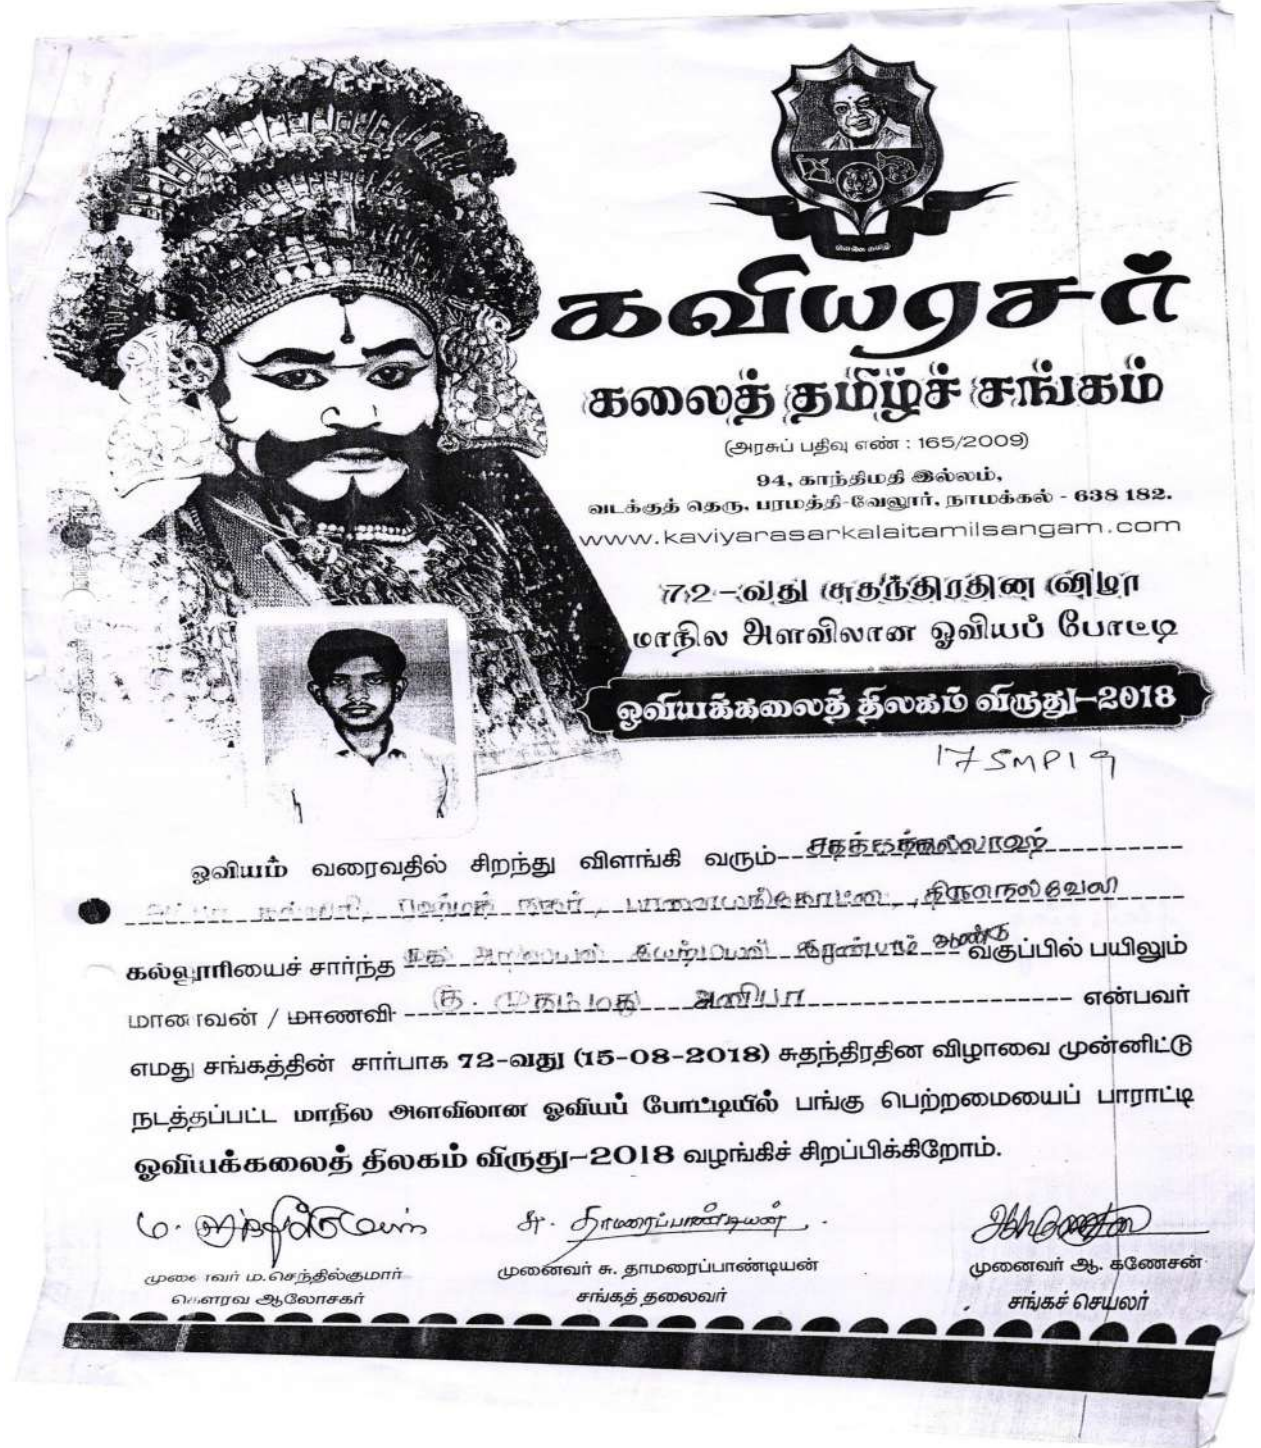 கவியரசர்
கலைத் தமிழ்ச் சங்கம்
(அரசுப் பதிவு எண் : 165/2009)
94, காந்திமதி இல்லம்,
வடக்குத் தெரு, பரமத்தி-வேலூர், நாமக்கல் - 638 182.
www.kaviyarasarkalaitamilsangam.com
72-வது சுதந்திரதின விழா
மாநில அளவிலான ஓவியப் போட்டி
ஓவியக்கலைத் திலகம் விருது-2018
17SMP19
ஓவியம் வரைவதில் சிறந்து விளங்கி வரும் சதக்கத்துல்லாஹ்
நகர், பாளையங்கோட்டை, திருநெல்வேலி
கல்லூரியைச் சார்ந்த இயற்பியல் இரண்டாம் ஆண்டு வகுப்பில் பயிலும்
மாணவன் / மாணவி முகம்மது என்பவர்
எமது சங்கத்தின் சார்பாக 72-வது (15-08-2018) சுதந்திரதின விழாவை முன்னிட்டு
நடத்தப்பட்ட மாநில அளவிலான ஓவியப் போட்டியில் பங்கு பெற்றமையைப் பாராட்டி
ஓவியக்கலைத் திலகம் விருது-2018 வழங்கிச் சிறப்பிக்கிறோம்.
சு. தாமரைப்பாண்டியன்
முனைவர் ம.செந்தில்குமார் முனைவர் சு. தாமரைப்பாண்டியன் முனைவர் ஆ. கணேசன்
கௌரவ ஆலோசகர் சங்கத் தலைவர் சங்கச் செயலர்